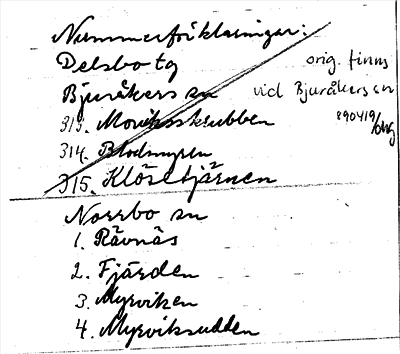 Nummerförklaringar:
Delsbo tg
Bjuråkers sn
orig. finns
vid Bjuråkers sn
890419/
313. Moviksskrubben
314. Blodmyren
315. Klösetjärnen
Norrbo sn
1. Rävnäs
2. Fjärden
3. Myrviken
4. Myrviksudden